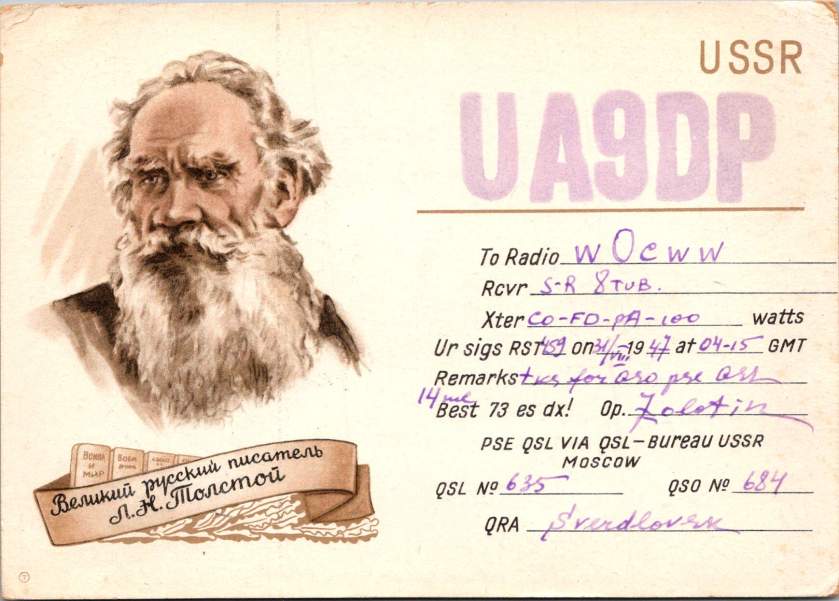 USSR
UA9DP
To Radio WØCWW
Rcvr S-R 8 TUB.
Xter CO-FD-PA-100 watts
Ur sigs RST 459 on 31/VIII 1947 at 04-15 GMT
Remarks tks for QSO pse QSL
14 mc
Best 73 es dx! Op. Zolotin
PSE QSL VIA QSL-BUREAU USSR
MOSCOW
QSL № 635 QSO № 684
QRA Sverdlovsk
Война
и
мир
Великий русский писатель
Л.Н. Толстой